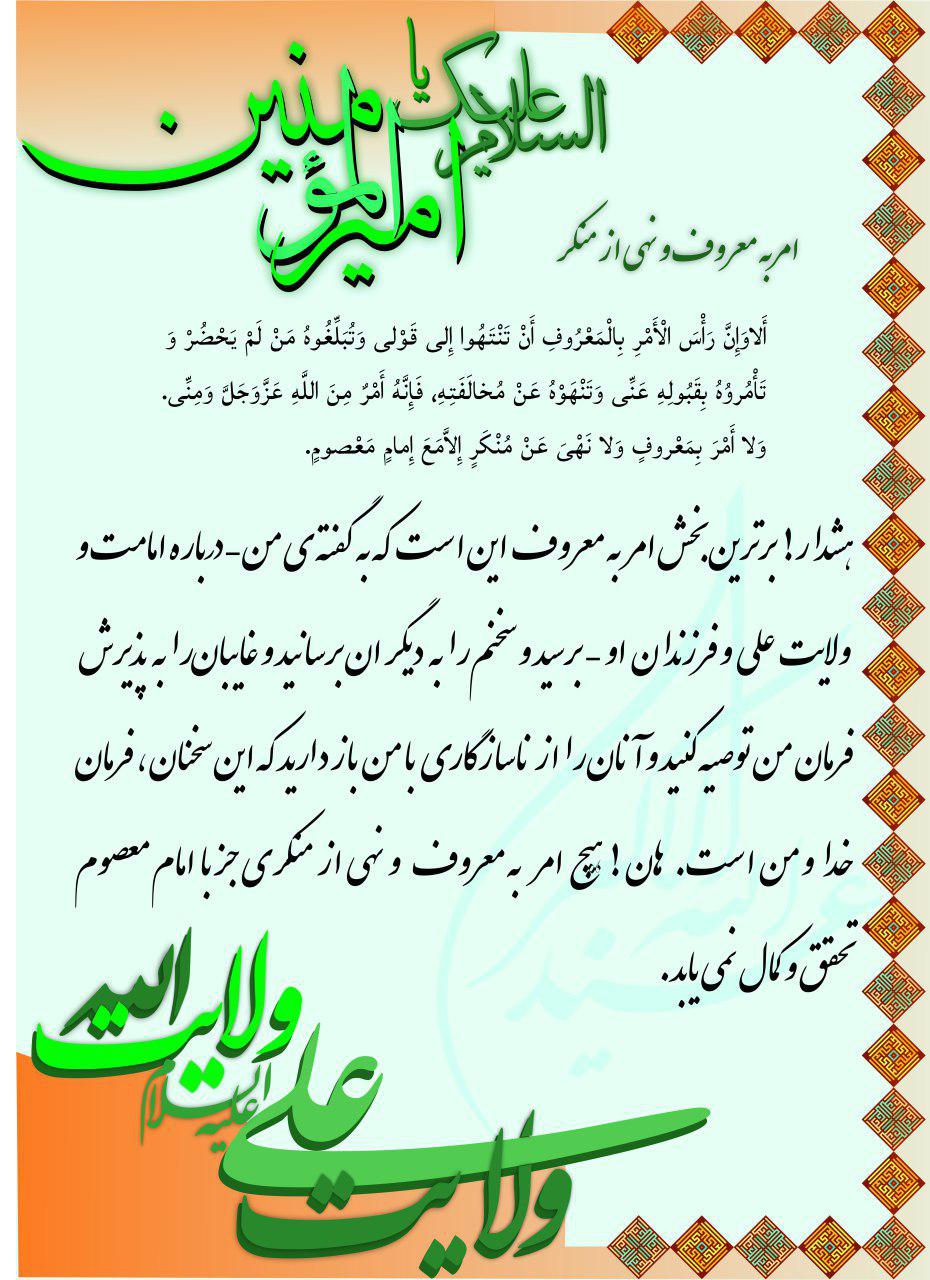 السلام علیک یا
امیرالمؤمنین
امر به معروف و نهی از منکر
أَلاوَإِنَّ رَأْسَ الْأَمْرِ بِالْمَعْرُوفِ أَنْ تَنْتَهُوا إِلی قَوْلی وَتُبَلِّغُوهُ مَنْ لَمْ یَحْضُرْ وَ
تَأْمُروُهُ بِقَبُولِهِ عَنِّی وَتَنْهَوْهُ عَنْ مُخالَفَتِهِ، فَإِنَّهُ أَمْرٌ مِنَ اللَّهِ عَزَّوَجَلَّ وَمِنِّی.
وَلا أَمْرَ بِمَعْروفٍ وَلا نَهْیَ عَنْ مُنْکَرٍ إِلاَّمَعَ إِمامٍ مَعْصومٍ.
هشدار! برترین بخش امر به معروف این است که به گفته‌ی من-درباره امامت و
ولایت علی و فرزندان او-برسید و سخنم را به دیگران برسانید و غایبان را به پذیرش
فرمان من توصیه کنید و آنان را از ناسازگاری با من باز دارید که این سخنان، فرمان
خدا و من است. هان! هیچ امر به معروف و نهی از منکری جز با امام معصوم
تحقق و کمال نمی یابد.
ولایت الله
ولایت علی
علیه السلام